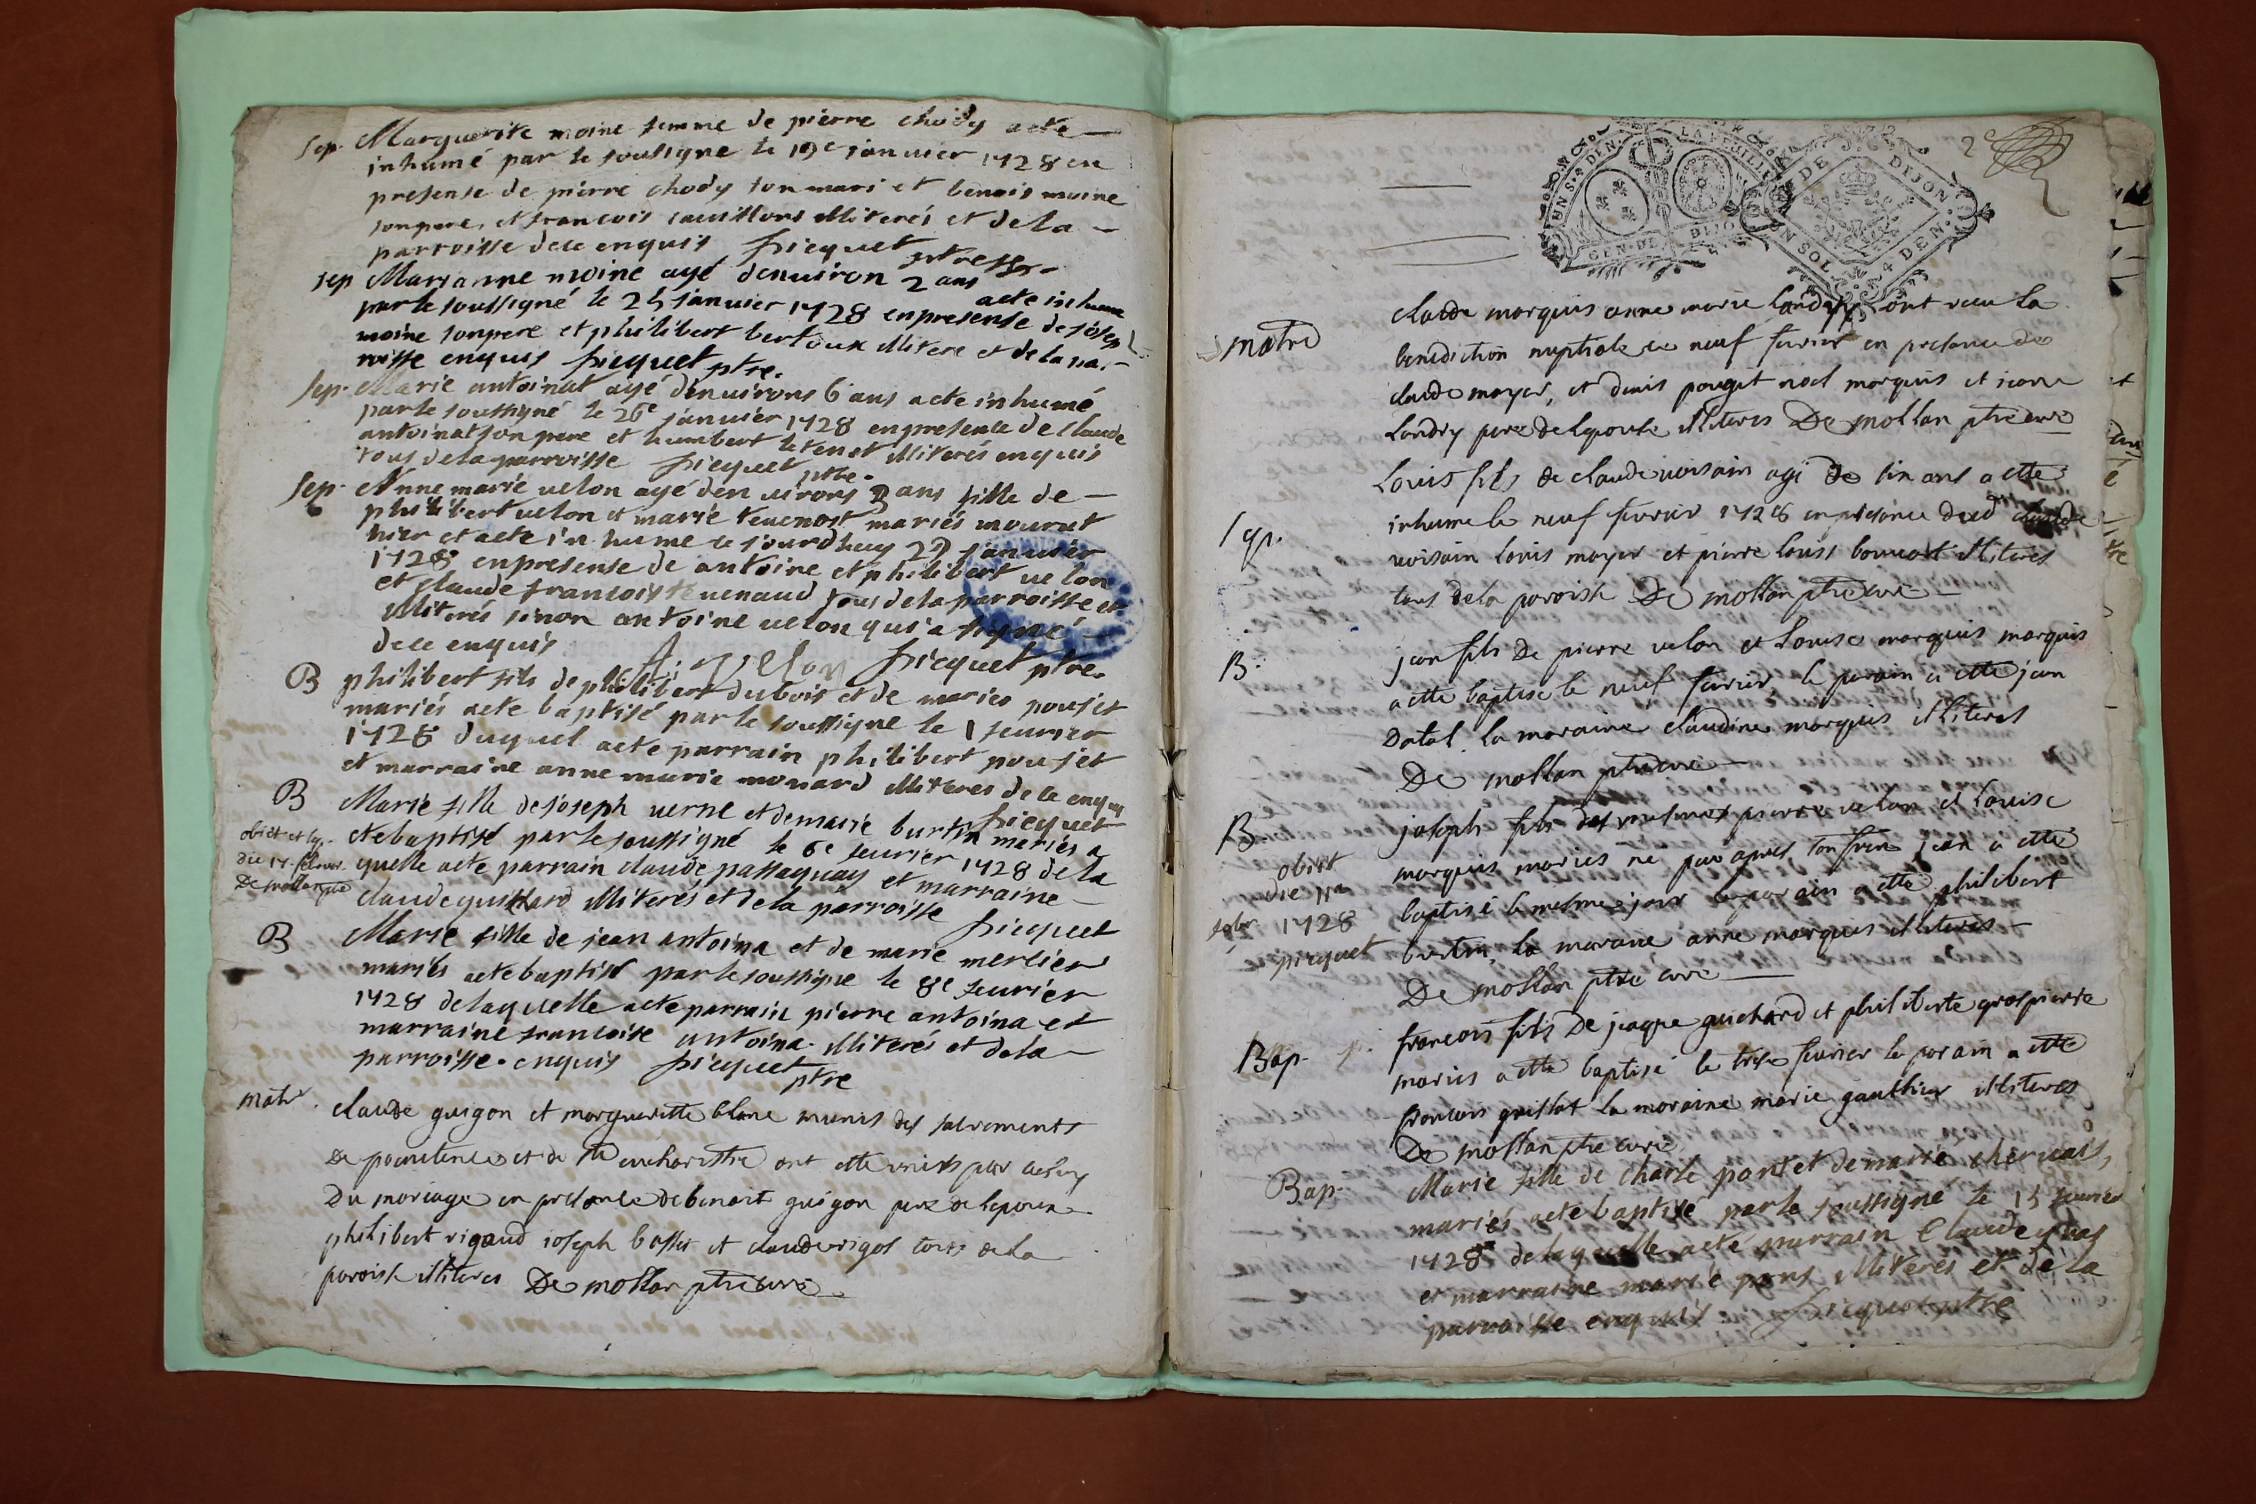 Sep. Marguerite moine femme de pierre chody acte
inhumé par le soussigne le 19e janvier 1728 en
presense de pierre chody son mari et benois moine
son pere, et francois illiterés et de la
parroisse de ce enquis picquet
ptre
sep Marianne moine agé denuiron 2 ans
acte inhumé
par le soussigné le 25 janvier 1728 en presense de joseph
moine son pere et philibert bertoux illiteré et de la pa-
roisse enquis picquet ptre.
Sep. Marie antoinat agé denuirons 6 ans acte inhumé
par le soussigné le 26e janvier 1728 en presense de claude
antoinat son pere et humbert illiterés enquis
tous de la parroisse picquet ptre.
Sep. Anne marie uelon agé denuirons 3 ans fille de
philibert uelon et marie teuenost mariés mourut
hier et acte inhume ce jourdhuy 27 janvier
1728 en presense de antoine et philibert uelon
et claude francois teuenaud tous de la parroisse et
illiterés sinon antoine uelon qui a signé
de ce enquis A. Velon picquet ptre.
B philibert fils de philibert dubois et de marie poujet
mariés acte baptisé par le soussigne le 1 feurier
1728 duquel acte parrain philibert poujet
et marraine anne marie monard illiteres de ce enquis
picquet
B Marie fille de joseph uerne et de marie burtin mariés a
obiit et
die 17 februar.
eté baptisé par le soussigné le 6e feurier 1728 de la
quelle acte parrain claude passaquay et marraine
claude guillard illiterés et de la parroisse picquet
B Marie fille de jean antoina et de marie mercier
mariés acte baptisé par le soussigne le 8e feurier
1728 de laquelle acte parrain pierre antoina et
marraine francoise antoina illiterés et de la
parroisse enquis picquet ptre
matr. claude guigon et margueritte blanc munis des sacrements
de poenitence et de ste eucharistie ont esté unis par
du mariage en presence de benoit guigon pere de lepoux
philibert rigaud joseph et claude rigot tous de la
paroisse illiteres De mollan ptre curé
2
GEN. DE DIJON
UN SOL 4 DEN.
matri claude marquis anne marie landry ont receu la
benediction nuptiale ce neuf feurier en presence de
claude mayer, et denis pouget noel marquis et
landry pere de lepouse illiteres De mollan ptre curé
Louis fils de claude uoisain agé de cinq ans a etté
Sep. inhume le neuf feurier 1728 en presence dud claude
uoisain louis mayer et pierre louis illiteres
tous de la paroisse De mollan ptre curé
B. jean fils de pierre uelon et Louise marquis marquis
a etté baptisé le neuf feurier, le parain a etté jean
datal la maraine claudine marquis illiteres
De mollan ptre curé
B joseph fils des mesmes pierre uelon et louise
obiit
die 11a
1728
picquet
marquis mariés né peu apres son frere jean a etté
baptisé le mesme jour le parain a etté philibert
burtin, la maraine anne marquis illiteres
De mollan ptre curé
Bap. francois fils de jaque guichard et philiberte grospierre
mariés a etté baptisé le treze feurier le parain a etté
francois guillot la maraine marie gauthier illiteres
De mollan ptre curé
Bap. Marie fille de charle pont et de marie cheruais,
mariés acte baptisé par le soussigné le 15 feurier
1728 de laquelle acte parrain claude
et marraine marie pont illiterés et de la
parroisse enquis picquet ptre